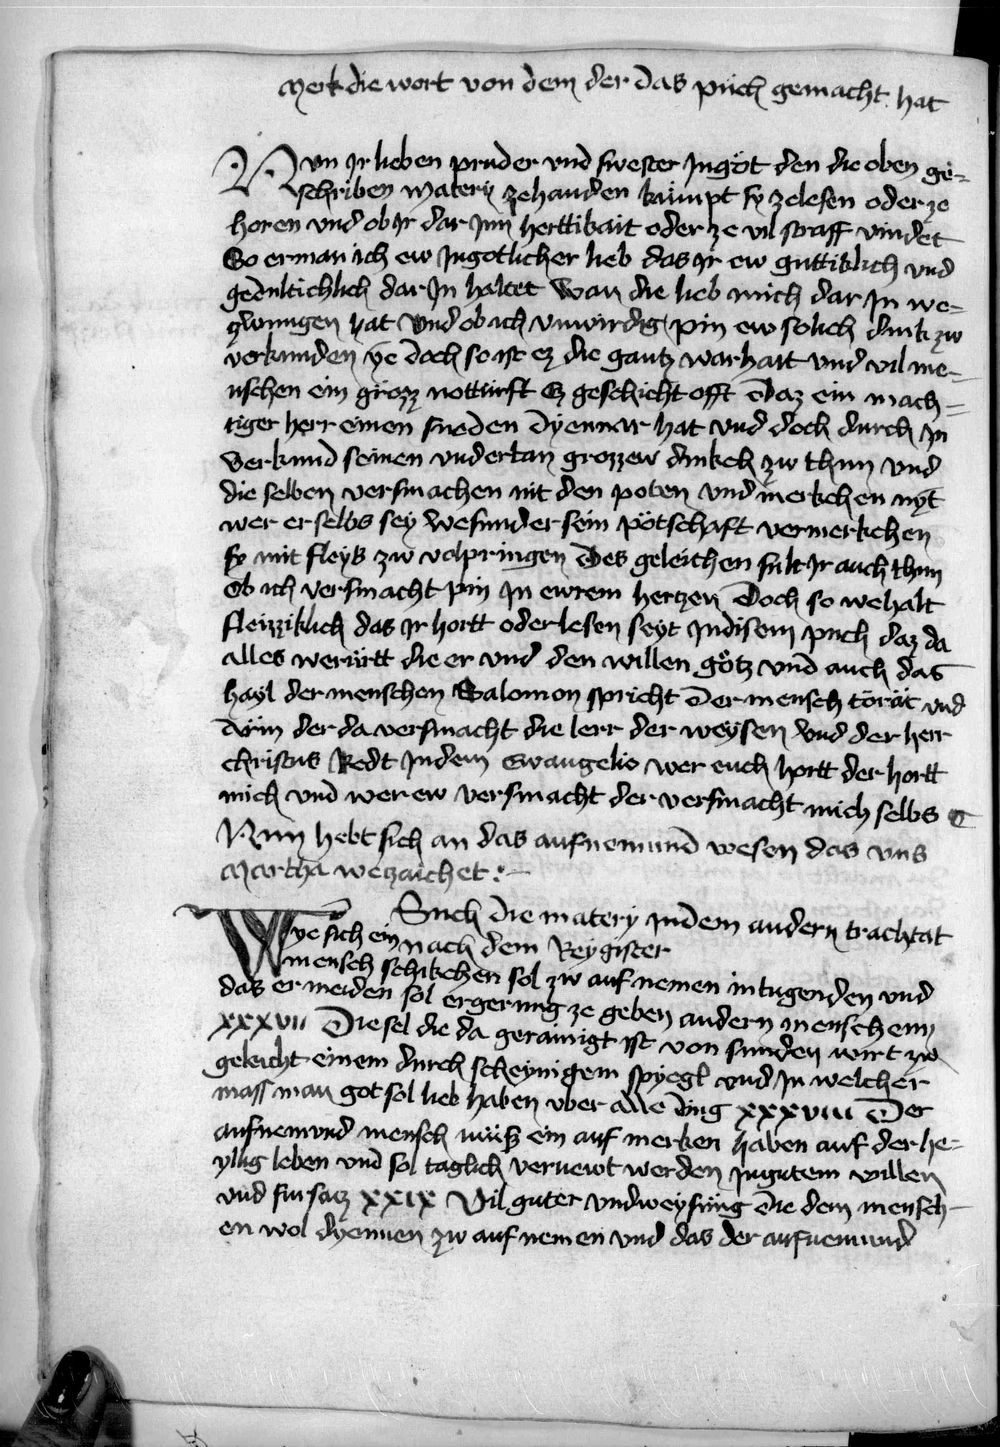 Merk die wort von dem der das püch gemacht hat
Nvn Ir lieben pruder vnd swester In göt den die oben ge-
schriben matery zehanden kumpt sy zelesen oder ze
horen vnd ob Ir dar Inn herttikait oder ze vil straff vindet
So erman ich ew In gotlicher lieb das Ir ew guttiklich vnd
gedultichlich dar In haltet wan die lieb mich dar In we-
zwungen hat Vnd ob ich vnwirdig pin ew solich dink zw
verkunden ye doch so ist ez die gantz warhait vnd vil me-
nschen ein grözz notturft Ez geschicht offt daz ein mach-
tiger herr einen sneden dyennar hat vnd doch durch In
verkund seinen vndertan grozzew dinkch zw thun vnd
die selben versmachen nit den poten vnd merkchen nyt
wer er selbs sey wesunder sein pötschaft vermerkchen
sy mit fleyß zw volpringen Des geleichen sult Ir auch thun
Ob ich versmacht pin In ewrem hertzen Doch so wehalt
fleizziklich das Ir hortt oder lesen seyt In disem puch daz da
alles werürtt die er vnd den willen götz vnd auch das
hayl der menschen Salomon spricht Der mensch törät vnd
der da versmacht die lerr der weysen Vnd der herr
christus Redt In dem Ewangelio wer euch hortt der hortt
mich vnd wer ew versmacht der versmacht mich selbs
Nun hebt sich an das aufnemund wesen das vns
Martha wezaichet :-
Such die matery In dem andern trachtat
nach dem Reygister
Wye sich ein
mensch schikchen sol zw auf nemen in tugenden vnd
das er meiden sol ergerung ze geben andern menschenn
xxxvii Die sel die da gerainigt ist von sunden wirt zw
geleicht einem durch scheynigem spyegl vnd In welcher
mass man got sol lieb haben vber alle ding xxxviii Der
aufnemund mensch muß ein auf merken haben auf der he-
ylig leben vnd sol taglich vernewt werden In gutem willen
vnd fursatz xxxix Vil guter vndweysung die dem mensch-
en wol dyennen zw auf nemen vnd das der aufnemund